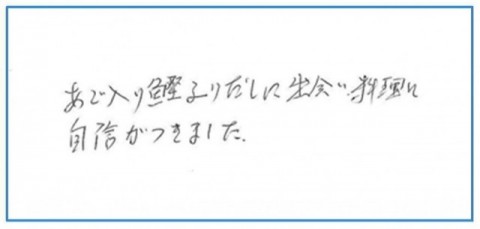 あご入り鰹ふりだしに出会い、料理に
自信がつきました。